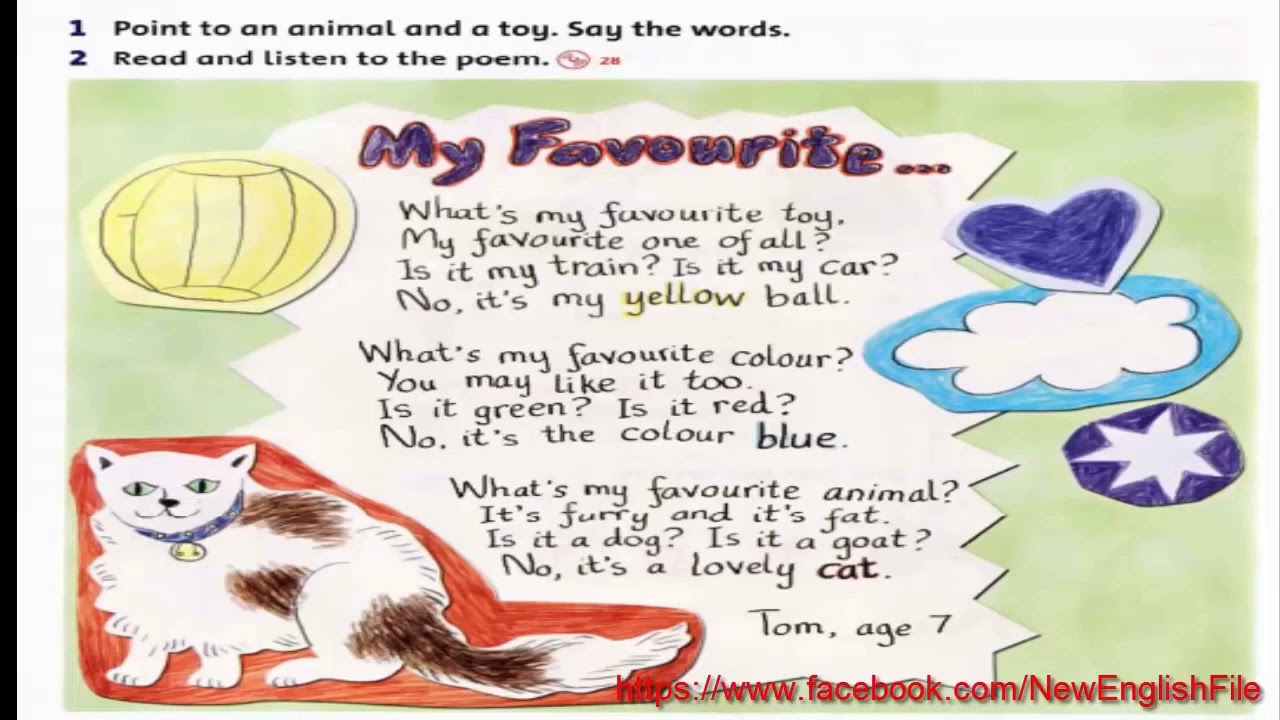 1 Point to an animal and a toy. Say the words.
2 Read and listen to the poem. 28
My Favourite...
What's my favourite toy,
My favourite one of all?
Is it my train? Is it my car?
No, it's my yellow ball.
What's my favourite colour?
You may like it too.
Is it green? Is it red?
No, it's the colour blue.
What's my favourite animal?
It's furry and it's fat.
Is it a dog? Is it a goat?
No, it's a lovely cat.
Tom, age 7
https://www.facebook.com/NewEnglishFile